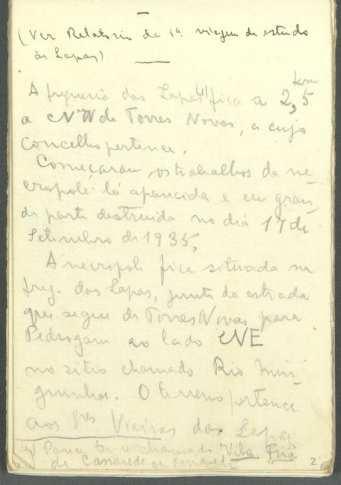 (Ver Relatorio da 1ª viagem de estudo
às Lapas)
A freguesia das Lapas(1) fica a 2,5 km
a NW de Torres Novas, a cujo
concelho pertence.
Começaram, os trabalhos da ne-
cropole lá aparecida e em gran-
de parte destruida no dia 17 de
Setembro de 1935,
A necropole fica situada na
freg. das Lapas, junto da estrada
que segue de Torres Novas para
Pedrogam ao lado NE
no sitio chamado Rio
O terreno pertence
aos Vieiras das Lapas
Vila
de
2